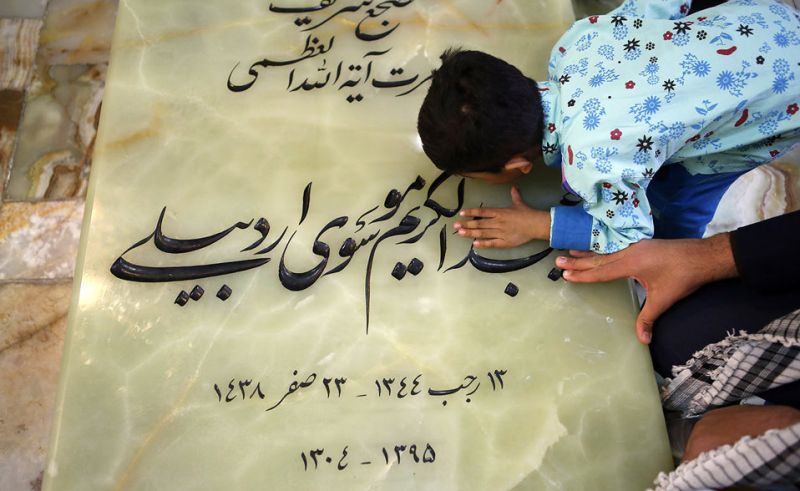 مضجع شریف
حضرت آیة الله العظمی
عبدالکریم موسوی اردبیلی
۱۳ رجب ۱۳۴۴ - ۲۳ صفر ۱۴۳۸
۱۳۰۴ - ۱۳۹۵